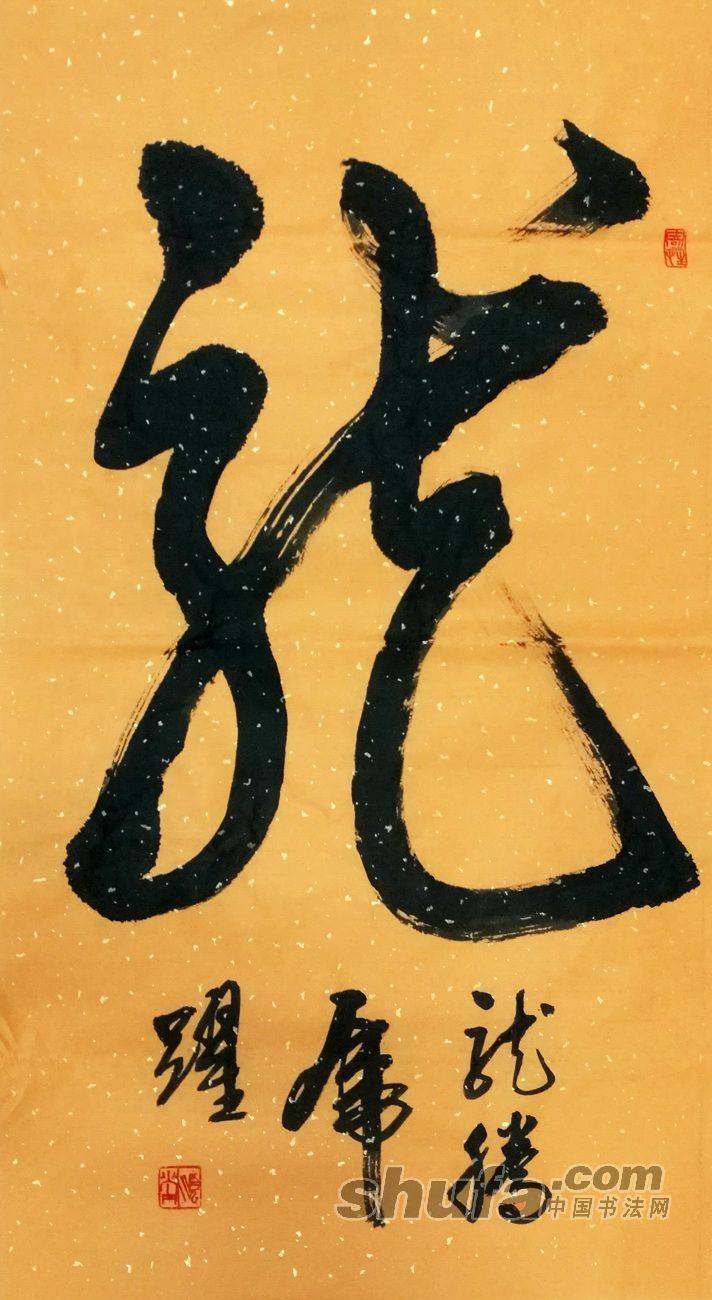 龍
龍騰
虎
躍
shufa.com
中国书法网